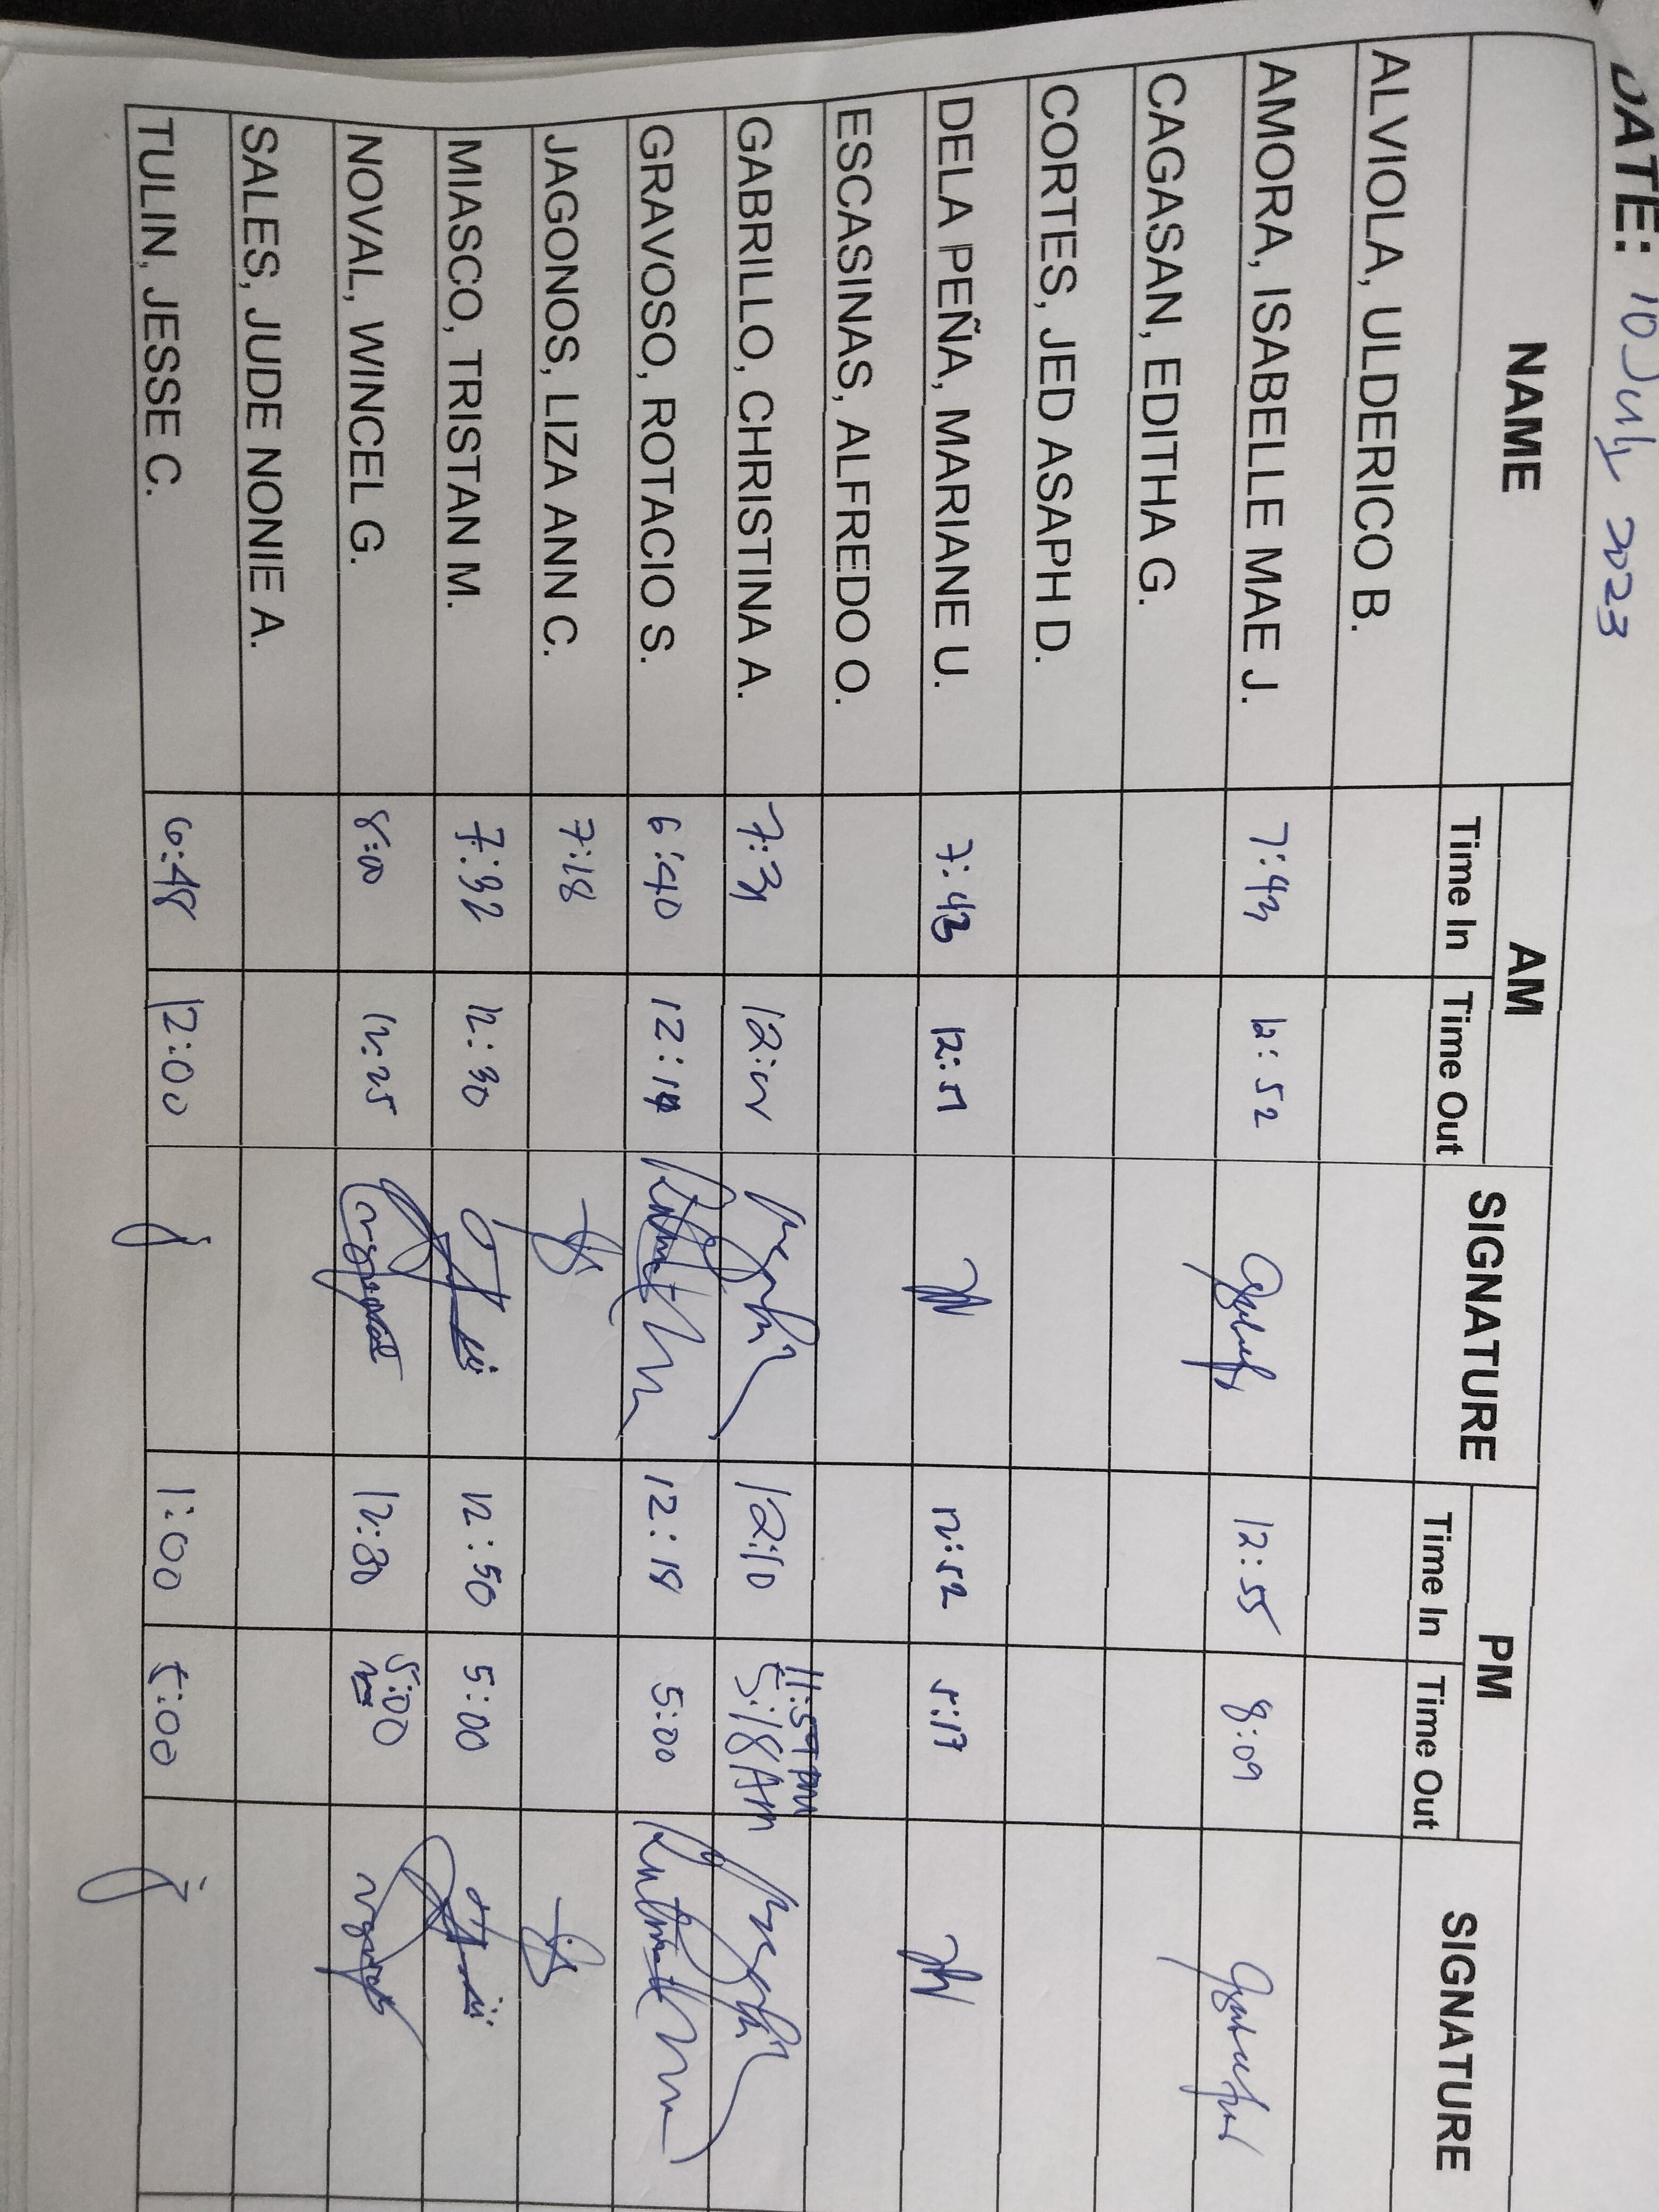 DATE: 10 July 2023
NAME AM SIGNATURE PM SIGNATURE
Time In Time Out Time In Time Out
ALVIOLA, ULDERICO B.
AMORA, ISABELLE MAE J. 7:43 12:52 12:55 8:09
CAGASAN, EDITHA G.
CORTES, JED ASAPH D.
DELA PEÑA, MARIANE U. 7:43 12:51 12:52 5:17
ESCASINAS, ALFREDO O.
11:59 PM
GABRILLO, CHRISTINA A. 12:10 5:18 AM
GRAVOSO, ROTACIO S. 6:40 12:14 12:18 5:00
JAGONOS, LIZA ANN C. 7:18
MIASCO, TRISTAN M. 7:32 12:30 12:50 5:00
NOVAL, WINCEL G. 8:00 12:25 12:30 5:00
SALES, JUDE NONIE A.
TULIN, JESSE C. 6:48 12:00 1:00 5:00